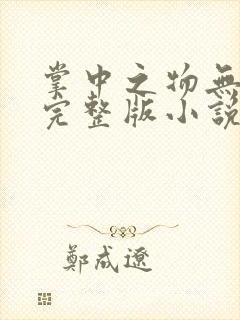 掌中之物無
完整版小說
鄭成遼